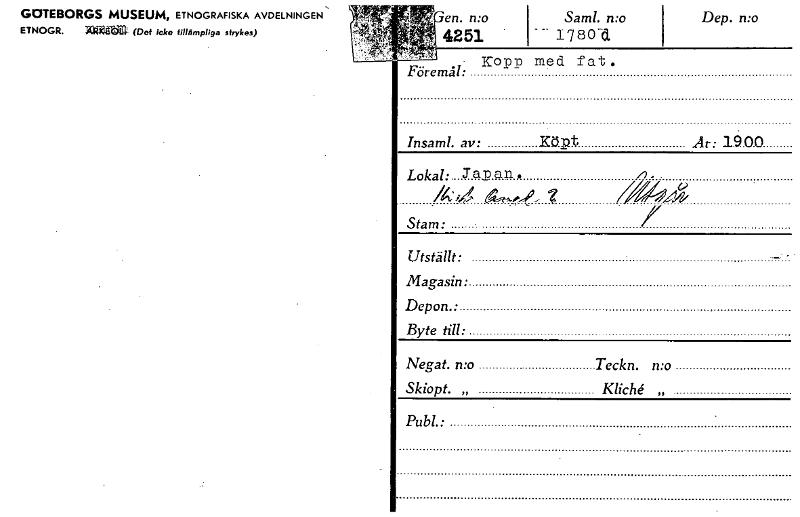 GÖTEBORGS MUSEUM, ETNOGRAFISKA AVDELNINGEN
ETNOGR. ARKEOL. (Det icke tillämpliga strykes)
Gen. n:o Saml. n:o Dep. n:o
4251 1780 d
Föremål: Kopp med fat.
Insaml. av: Köpt År: 1900
Lokal: Japan.
Utgår
Stam:
Utställt:
Magasin:
Depon.:
Byte till:
Negat. n:o Teckn. n:o
Skiopt. „ Kliché „
Publ.: